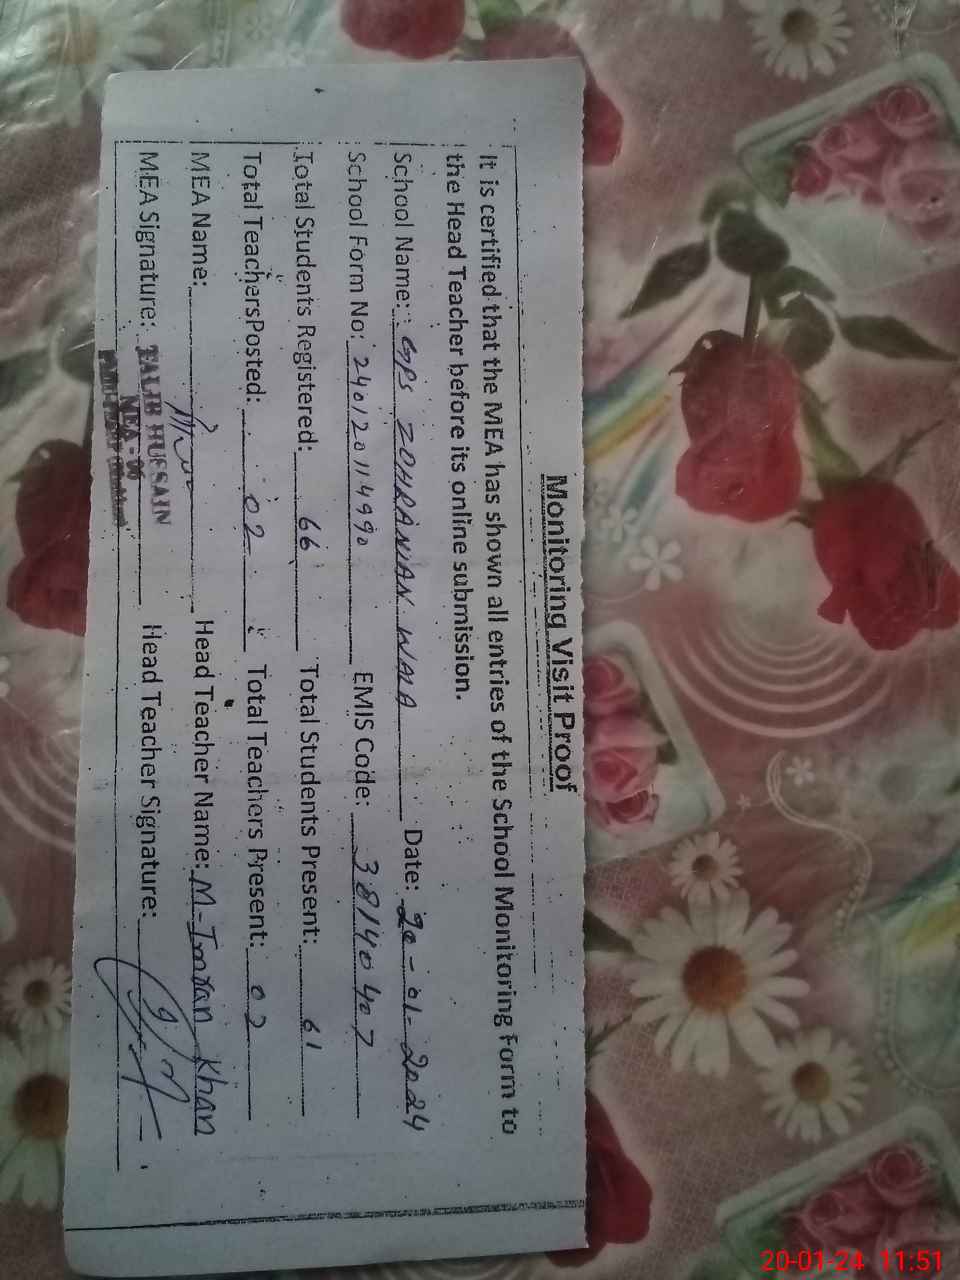 Monitoring Visit Proof
It is certified that the MEA has shown all entries of the School Monitoring Form to
the Head Teacher before its online submission.
School Name: GPS ZOHRANIAN WALA Date: 20-01-2024
School Form No: 240120114990 EMIS Code: 38140407
Total Students Registered: 66 Total Students Present: 61
Total TeachersPosted: 02 Total Teachers Present: 02
MEA Name: Head Teacher Name: M-Imran Khan
MEA Signature: TALIB HUSSAIN Head Teacher Signature:
MEA -
20-01-24 11:51